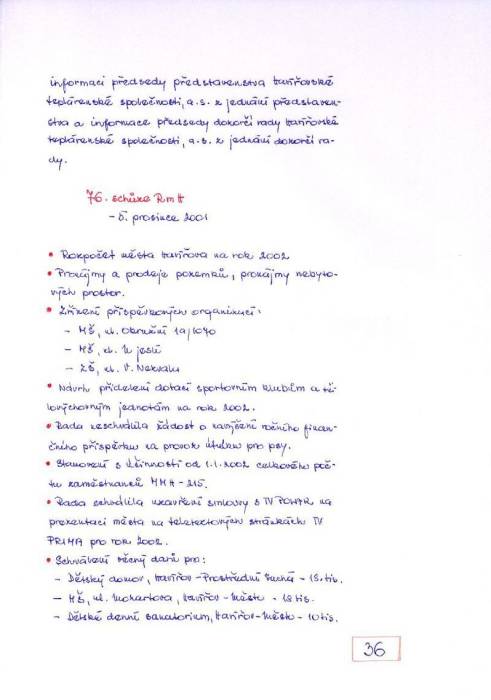 informací předsedy představenstva Havířovské
teplárenské společnosti, a.s. z jednání představen-
stva a informace předsedy dozorčí rady Havířovské
teplárenské společnosti, a.s. z jednání dozorčí ra-
dy.
76. schůze RmH
- 5. prosince 2001
• Rozpočet města Havířova na rok 2002
• Pronájmy a prodeje pozemků, pronájmy nebyto-
vých prostor.
• Zřízení příspěvkových organizací:
- MŠ, ul. Okružní 19/1070
- MŠ, ul. U jeslí
- ZŠ, ul. F. Nekvaky
• Návrh přidělení dotací sportovním klubům a tě-
lovýchovným jednotám na rok 2002.
• Rada neschválila žádost o navýšení ročního finan-
čního příspěvku na provoz útulku pro psy.
• Stanovení s účinností od 1.1.2002 celkového poč-
tu zaměstnanců MMH - 215.
• Rada schválila uzavření smlouvy s TV na
prezentaci města na teletextových stránkách TV
PRIMA pro rok 2002.
• Schválení věcný darů pro:
- Dětský domov, Havířov - Prostřední Suchá - 15 tis.
- MŠ, ul. Mozartova, Havířov - Město - 12 tis.
- Dětské denní sanatorium, Havířov - Město - 10 tis.
36